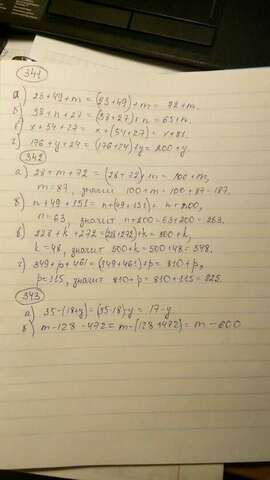 341
а) 23+49+m=(23+49)+m= 92+m.
б) 38+n+27=(38+27)+n=65+n.
в) x+54+27=x+(54+27)=x+81.
г) 176+y+24=(176+24)+y=200+y.
342
а) 28+m+72=(28+72)+m=100+m,
m=87, значит 100+m=100+87=187.
б) n+49+151=n+(49+151)=n+200,
n=63, значит n+200=63+200=263.
в) 228+k+272=(228+272)+k=500+k,
k=48, значит 500+k=500+48=548.
г) 349+p+461=(349+461)+p=810+p,
p=115, значит 810+p=810+115=925.
343
а) 35-(18+y)=(35-18)-y=17-y
б) m-128-472=m-(128+472)=m-600